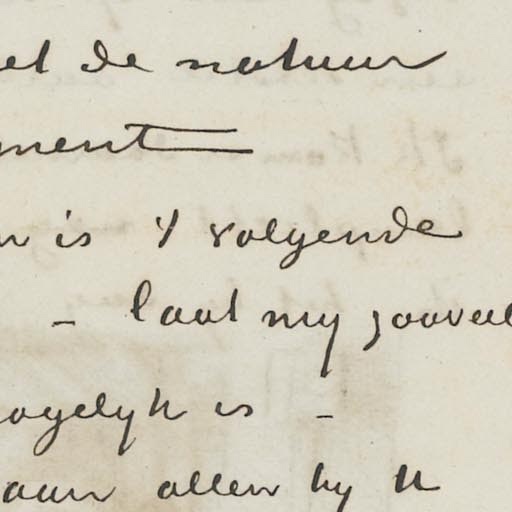 et de natuur
ment
n is 't volgende
- laat my zooveel
ogelyk is -
aan allen by U